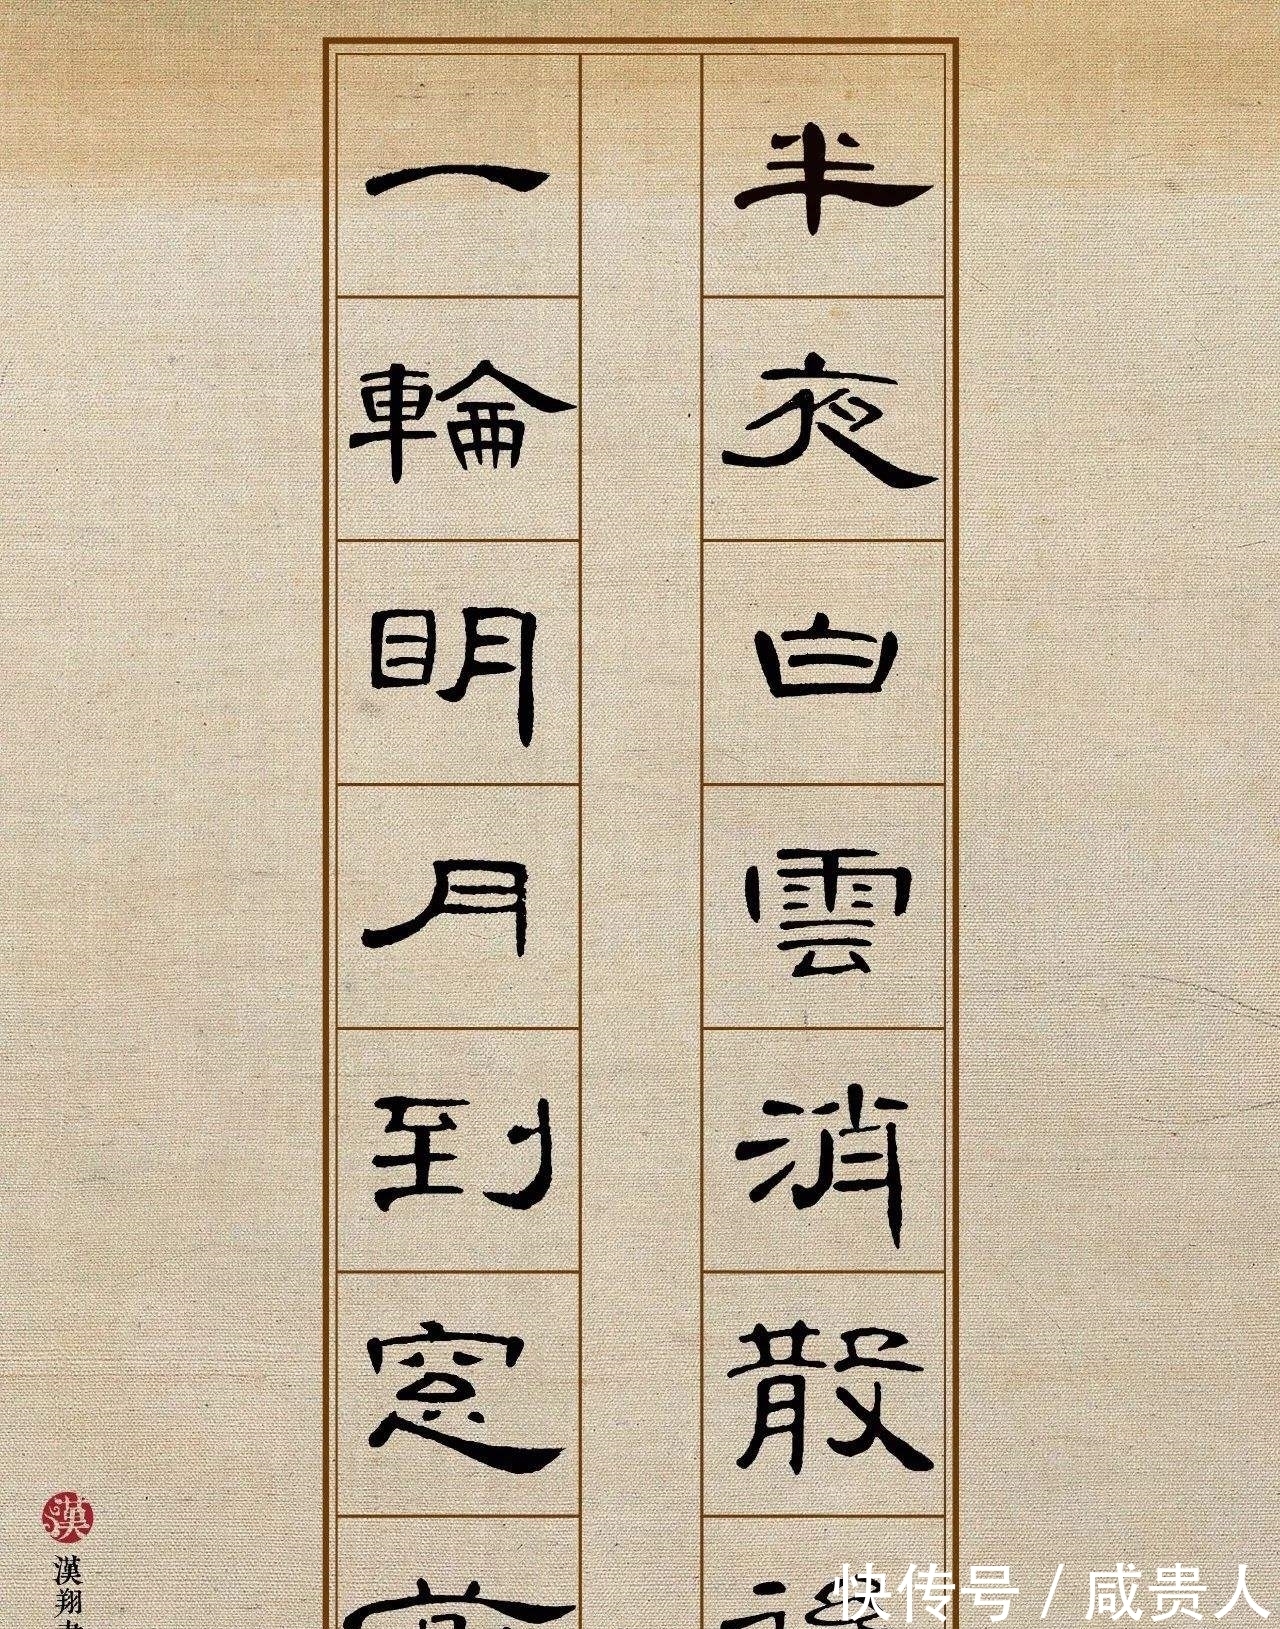 半夜白雲消散
一輪明月到窓
漢
漢翔
快传号 / 咸贵人